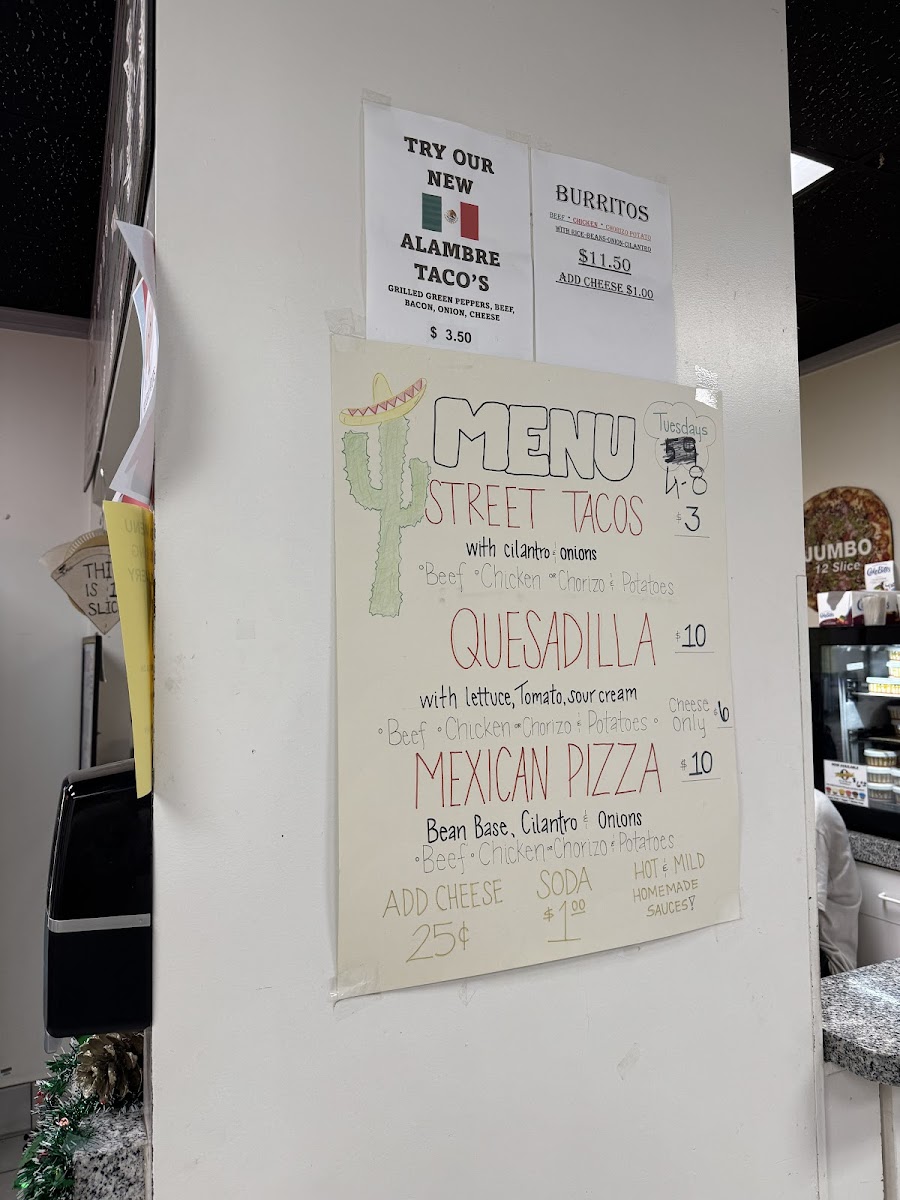 TRY OUR
NEW
ALAMBRE
TACO'S
GRILLED GREEN PEPPERS, BEEF,
BACON, ONION, CHEESE
$ 3.50
BURRITOS
BEEF * CHICKEN * CHORIZO POTATO
WITH RICE-BEANS-ONION-CILANTRO
$11.50
ADD CHEESE $1.00
MENU
Tuesdays
4-8
STREET TACOS $3
with cilantro & onions
°Beef °Chicken °Chorizo & Potatoes
QUESADILLA $10
with lettuce, Tomato, sour cream
°Beef °Chicken °Chorizo & Potatoes °
Cheese
only $6
MEXICAN PIZZA $10
Bean Base, Cilantro & Onions
°Beef °Chicken °Chorizo & Potatoes
ADD CHEESE
25¢
SODA
$1.00
HOT & MILD
HOMEMADE
SAUCES!
THI
IS 1
SLIC
JUMBO
12 Slice